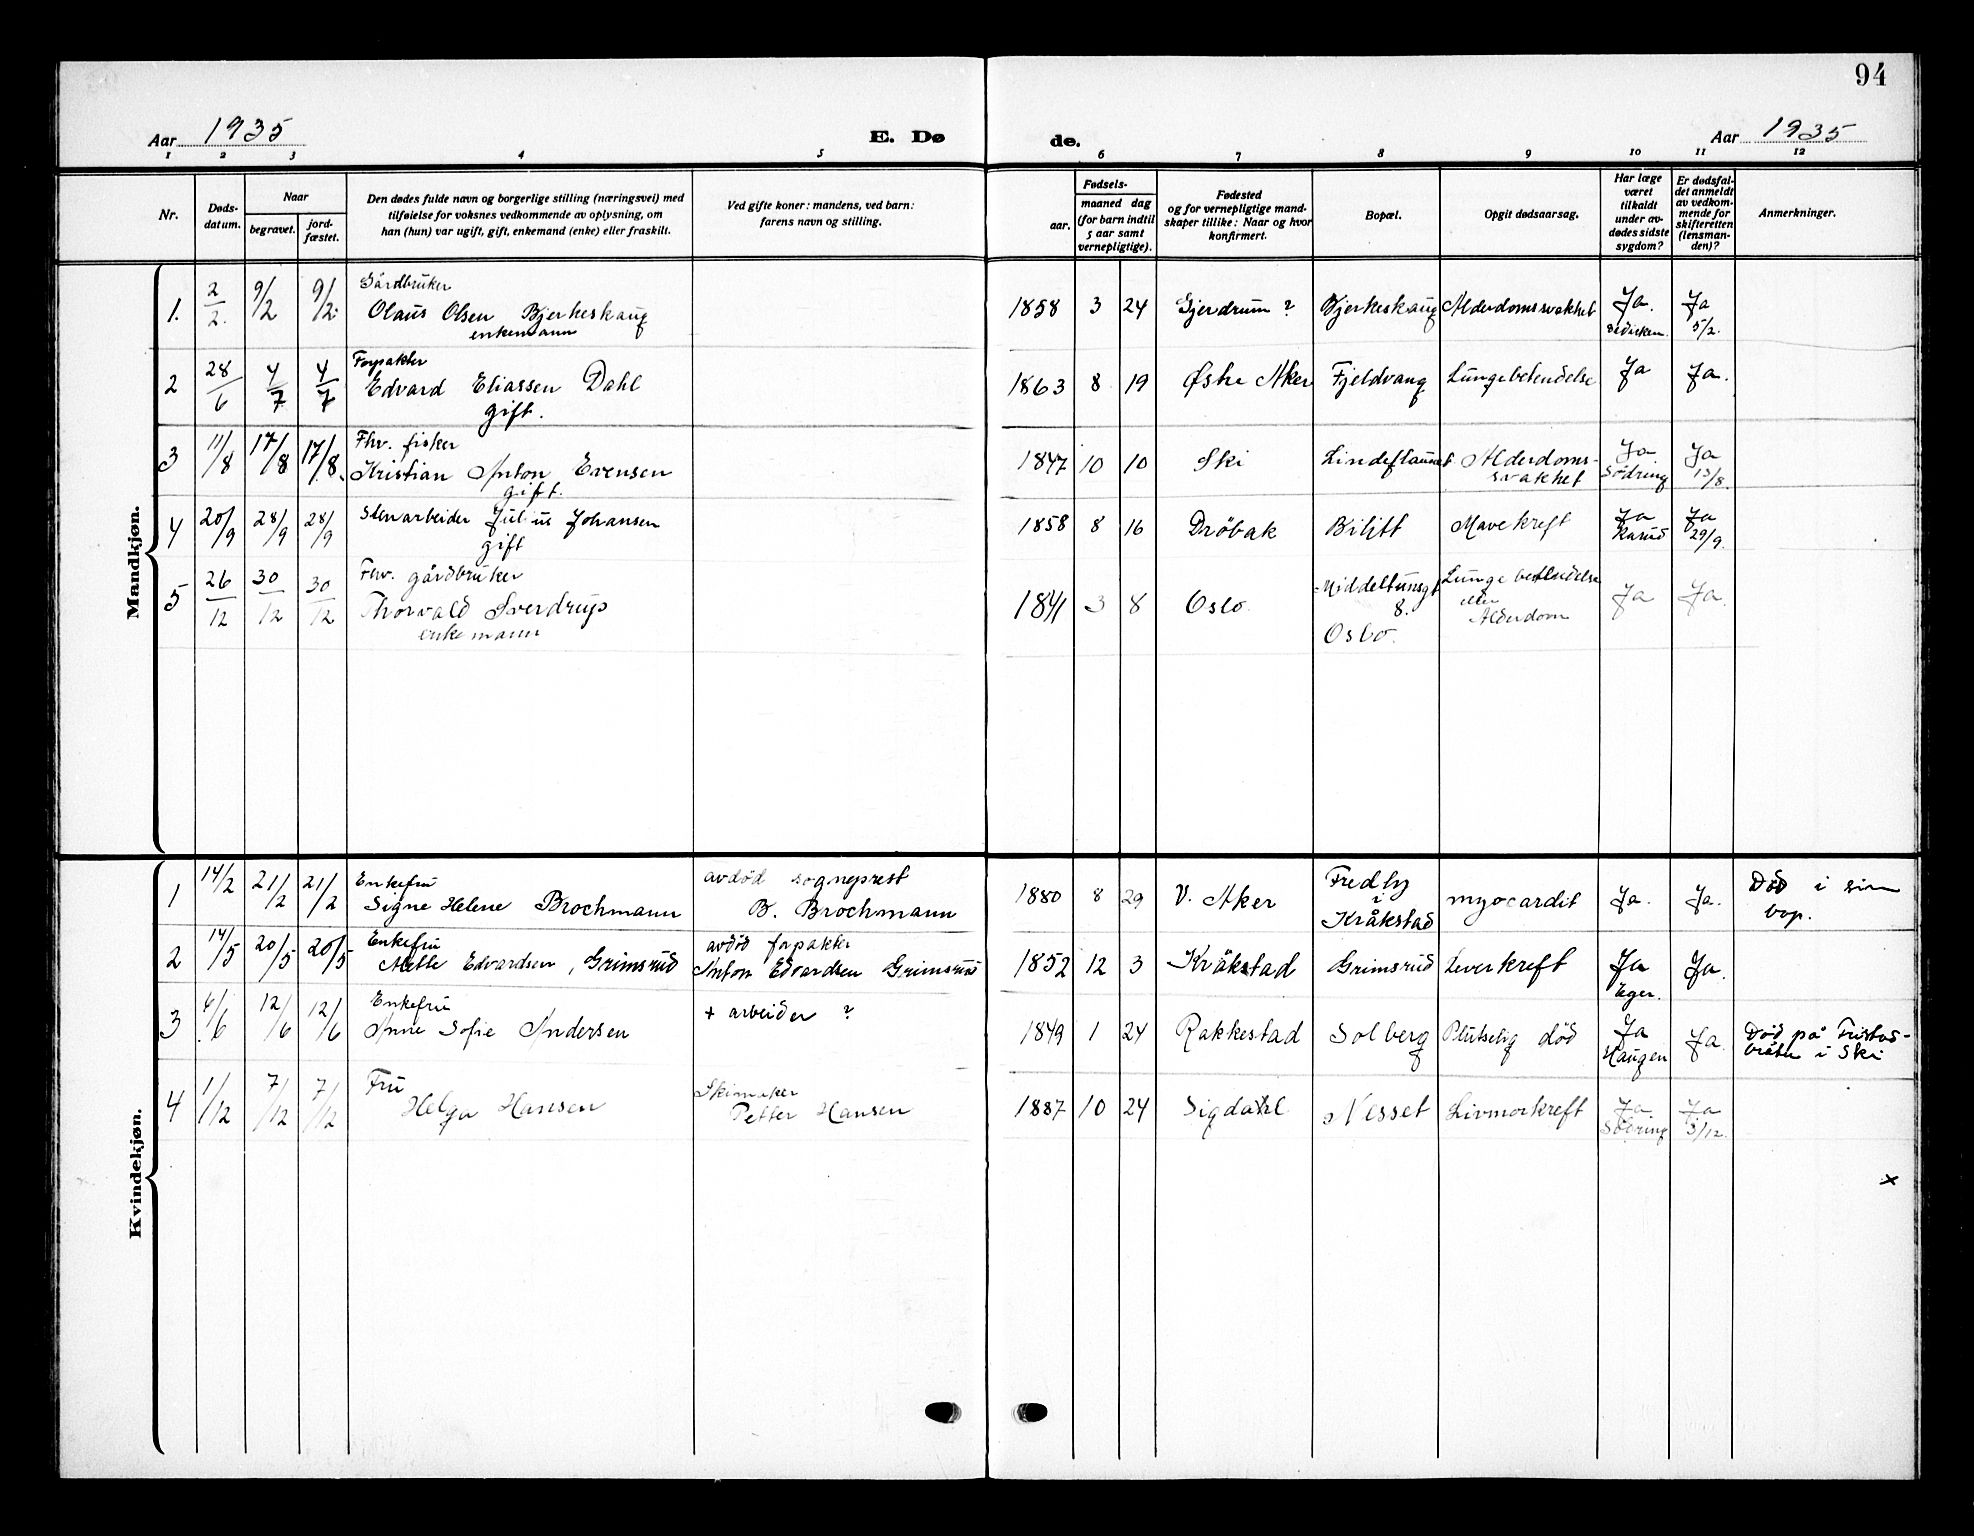 94
Aar 1935
E. Dø
de.
Aar 1935
1 2 3 4 5 6 7 8 9 10 11 12
Nr.
Døds-
datum.
Naar
begravet.
jord-
fæstet.
Den dødes fulde navn og borgerlige stilling (næringsvei) med
tilføielse for voksnes vedkommende av oplysning, om
han (hun) var ugift, gift, enkemand (enke) eller fraskilt.
Ved gifte koner: mandens, ved barn:
farens navn og stilling.
Fødsels-
aar.
maaned dag
(for barn indtil
5 aar samt
vernepligtige).
Fødested
og for vernepligtige mand-
skaper tillike: Naar og hvor
konfirmert.
Bopæl.
Opgit dødsaarsag.
Har læge
været
tilkaldt
under av-
dødes sidste
sygdom?
Er dødsfal-
det anmeldt
av vedkom-
mende for
skifteretten
(lensman-
den)?
Anmerkninger.
Mandkjøn.
1. 2/2. 9/2 9/2. Gårdbruker
Olaus Olsen Bjerkeskaug
enkemann
1858 3 24 Gjerdrum ? Bjerkeskaug Alderdomssvakhet Ja. Ja 5/2.
2 28/6 4/7 4/7 Forpakter
Edvard Eliassen Dahl
gift.
1863 8 19 Østre Aker Fjeldvang Lungebetendelse Ja Ja.
3 11/8 17/8 17/8. Fhv. fisker
Kristian Anton Evensen
gift.
1847 10 10 Ski Alderdoms-
svakhet Ja Södring Ja 13/8.
4 20/9 28/9 28/9 Stenarbeider Julius Johansen
gift
1858 8 16 Drøbak Bilitt Mavekreft Ja Ja 29/9.
5 26/12 30/12 30/12 Fhv. gårdbruker
Thorvald Sverdrup
enkemann
1841 3 8 Oslo Middeltunsgt
8.
Oslo. Lungebetendelse
eller
Alderdom Ja Ja.
Kvindekjøn.
1 14/2 21/2 21/2 Enkefru
Signe Helene Brochmann avdöd sogneprest
B. Brochmann
1880 8 29 V. Aker Fredly
i
Kråkstad myocardit Ja. Ja. Död i sin
bop.
2 14/5 20/5 20/5 Enkefru
Mette Edvardsen, Grimsrud avdöd forpakter
Anton Edvardsen Grimsrud
1852 12 3 Kråkstad Grimsrud Leverkreft Ja Eger. Ja.
3 6/6 12/6 12/6 Enkefru
Anne Sofie Andersen + arbeider ?
1849 1 24 Rakkestad Solberg Plutselig död Ja Haugen Ja. Död på
i Ski
4 1/12 7/12 7/12 Fru
Helga Hansen Skimaker
Petter Hansen
1887 10 24 Sigdahl Nesset Livmorkreft Ja Södring Ja 3/12.
x